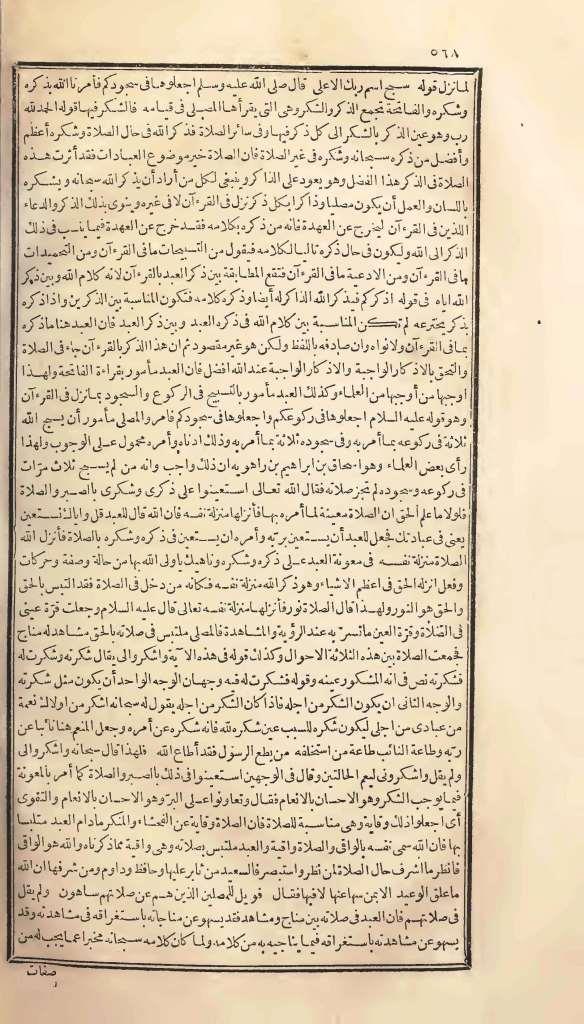 ٥٦٨
لما نزل قوله سبح اسم ربك الاعلى قال صلى الله عليه وسلم اجعلوها فى سجودكم فأمرنا الله بذكره
وشكره والفاتحة تجمع الذكر والشكر وهى التى يقرأها المصلى فى قيامه فالشكر فيها قوله الحمد لله
رب وهو عين الذكر بالشكر الى كل ذكر فيها وفى سائر الصلاة فذكر الله فى حال الصلاة وشكره أعظم
وأفضل من ذكره سبحانه وشكره فى غير الصلاة فان الصلاة خير موضوع العبادات فقد أثرت هذه
الصلاة فى الذكر هذا الفضل وهو يعود على الذاكر وينبغى لكل من أراد أن يذكر الله سبحانه ويشكره
باللسان والعمل أن يكون مصليا وذاكرا بكل ذكر نزل فى القرءآن لا فى غيره وينوى بذلك الذكر والدعاء
اللذين فى القرءآن ليخرج عن العهدة فانه من ذكره بكلامه فقد خرج عن العهدة فيما ينسب فى ذلك
الذكر الى الله وليكون فى حال ذكره تاليا لكلامه فيقول من التسبيحات ما فى القرءآن ومن التحميدات
ما فى القرءآن ومن الادعية ما فى القرءآن فتقع المطابقة بين ذكر العبد بالقرءآن لانه كلام الله وبين ذكر
الله اياه فى قوله اذكركم فيذكر الله الذاكر له أيضا وذكره كلامه فتكون المناسبة بين الذكرين واذا ذكره
بذكر يخترعه لم تكن المناسبة بين كلام الله فى ذكره العبد وبين ذكر العبد فان العبد هنا ما ذكره
بما فى القرءآن ولا نواه وان صادفه باللفظ ولكن هو غير مقصود ثم ان هذا الذكر بالقرءآن جاء فى الصلاة
والتحق بالاذكار الواجبة والاذكار الواجبة عند الله افضل فان العبد مأمور بقراءة الفاتحة ولهذا
اوجبها من أوجبها من العلماء وكذلك العبد مأمور بالتسبيح فى الركوع والسجود بما نزل فى القرءآن
وهو قوله عليه السلام اجعلوها فى ركوعكم واجعلوها فى سجودكم فامر والمصلى مأمور أن يسبح الله
ثلاثة فى ركوعه بما أمر به وفى سجوده ثلاثة بما أمر به وذلك ادناه وأمره محمول على الوجوب ولهذا
رأى بعض العلماء وهو اسحاق بن ابراهيم بن راهويه ان ذلك واجب وانه من لم يسبح ثلاث مرات
فى ركوعه وسجوده لم تجز صلاته فقال الله تعالى استعينوا على ذكرى وشكرى بالصبر والصلاة
فلولا ما علم الحق ان الصلاة معينة لما أمره بها فأنزلها منزلة نفسه فان الله قال للعبد قل واياك نستعين
يعنى فى عبادتك فجعل للعبد أن يستعين بربه وأمره ان يستعين فى ذكره وشكره بالصلاة فأنزل الله
الصلاة منزلة نفسه فى معونة العبد على ذكره وشكره وناهيك ياولى الله بها من حالة وصفة وحركات
وفعل انزله الحق فى اعظم الاشياء وهو ذكر الله منزلة نفسه فكانه من دخل فى الصلاة فقد التبس بالحق
والحق هو النور ولهذا قال الصلاة نور فأنزلها منزلة نفسه تعالى قال عليه السلام وجعلت قرة عينى
فى الصلاة وقرة العين ما تسر به عند الرؤية والمشاهدة فالمصلى ملتبس فى صلاته بالحق مشاهد له مناج
فجمعت الصلاة بين هذه الثلاثة الاحوال وكذلك قوله فى هذه الآية واشكروا لى يقال شكرته وشكرت له
فشكرته نص فى انه المشكور عينه وقوله فشكرت له فيه وجهان الوجه الواحد أن يكون مثل شكرته
والوجه الثانى ان يكون الشكر من اجله فاذا كان الشكر من اجله يقول له سبحانه اشكر من اولاك نعمة
من عبادى من اجلى ليكون شكره للسبب عين شكره لله فانه شكره عن أمره وجعل المنعم هنا نائبا عن
ربه وطاعة النائب طاعة من استخلفه من يطع الرسول فقد أطاع الله فلهذا قال سبحانه واشكروا لى
ولم يقل واشكرونى ليعم الحالتين وقال فى الوجهين استعينوا فى ذلك بالصبر والصلاة كما أمر بالمعونة
فيما يوجب الشكر وهو الاحسان بالانعام فقال وتعاونوا على البر وهو الاحسان بالانعام والتقوى
أى اجعلوا ذلك وقاية وهى مناسبة للصلاة فان الصلاة وقاية عن الفحشاء والمنكر مادام العبد متلبسا
بها فان الله سمى نفسه بالواقى والصلاة واقية والعبد ملتبس بصلاته وهى واقية مما ذكرناه والله هو الواقى
فانظر ما اشرف حال الصلاة لمن نظر واستبصر فالسعيد من ثابر عليها وحافظ وداوم ومن شرفها ان الله
ما علق الوعيد الا بمن سها عنها لا فيها فقال فويل للمصلين الذين هم عن صلاتهم ساهون ولم يقل
فى صلاتهم فان العبد فى صلاته بين مناج ومشاهد فقد يسهو عن مناجاته باستغراقه فى مشاهدته وقد
يسهو عن مشاهدته باستغراقه فيما يناجيه به من كلامه ولما كان كلامه سبحانه مخبرا عما يجب له من
صفات